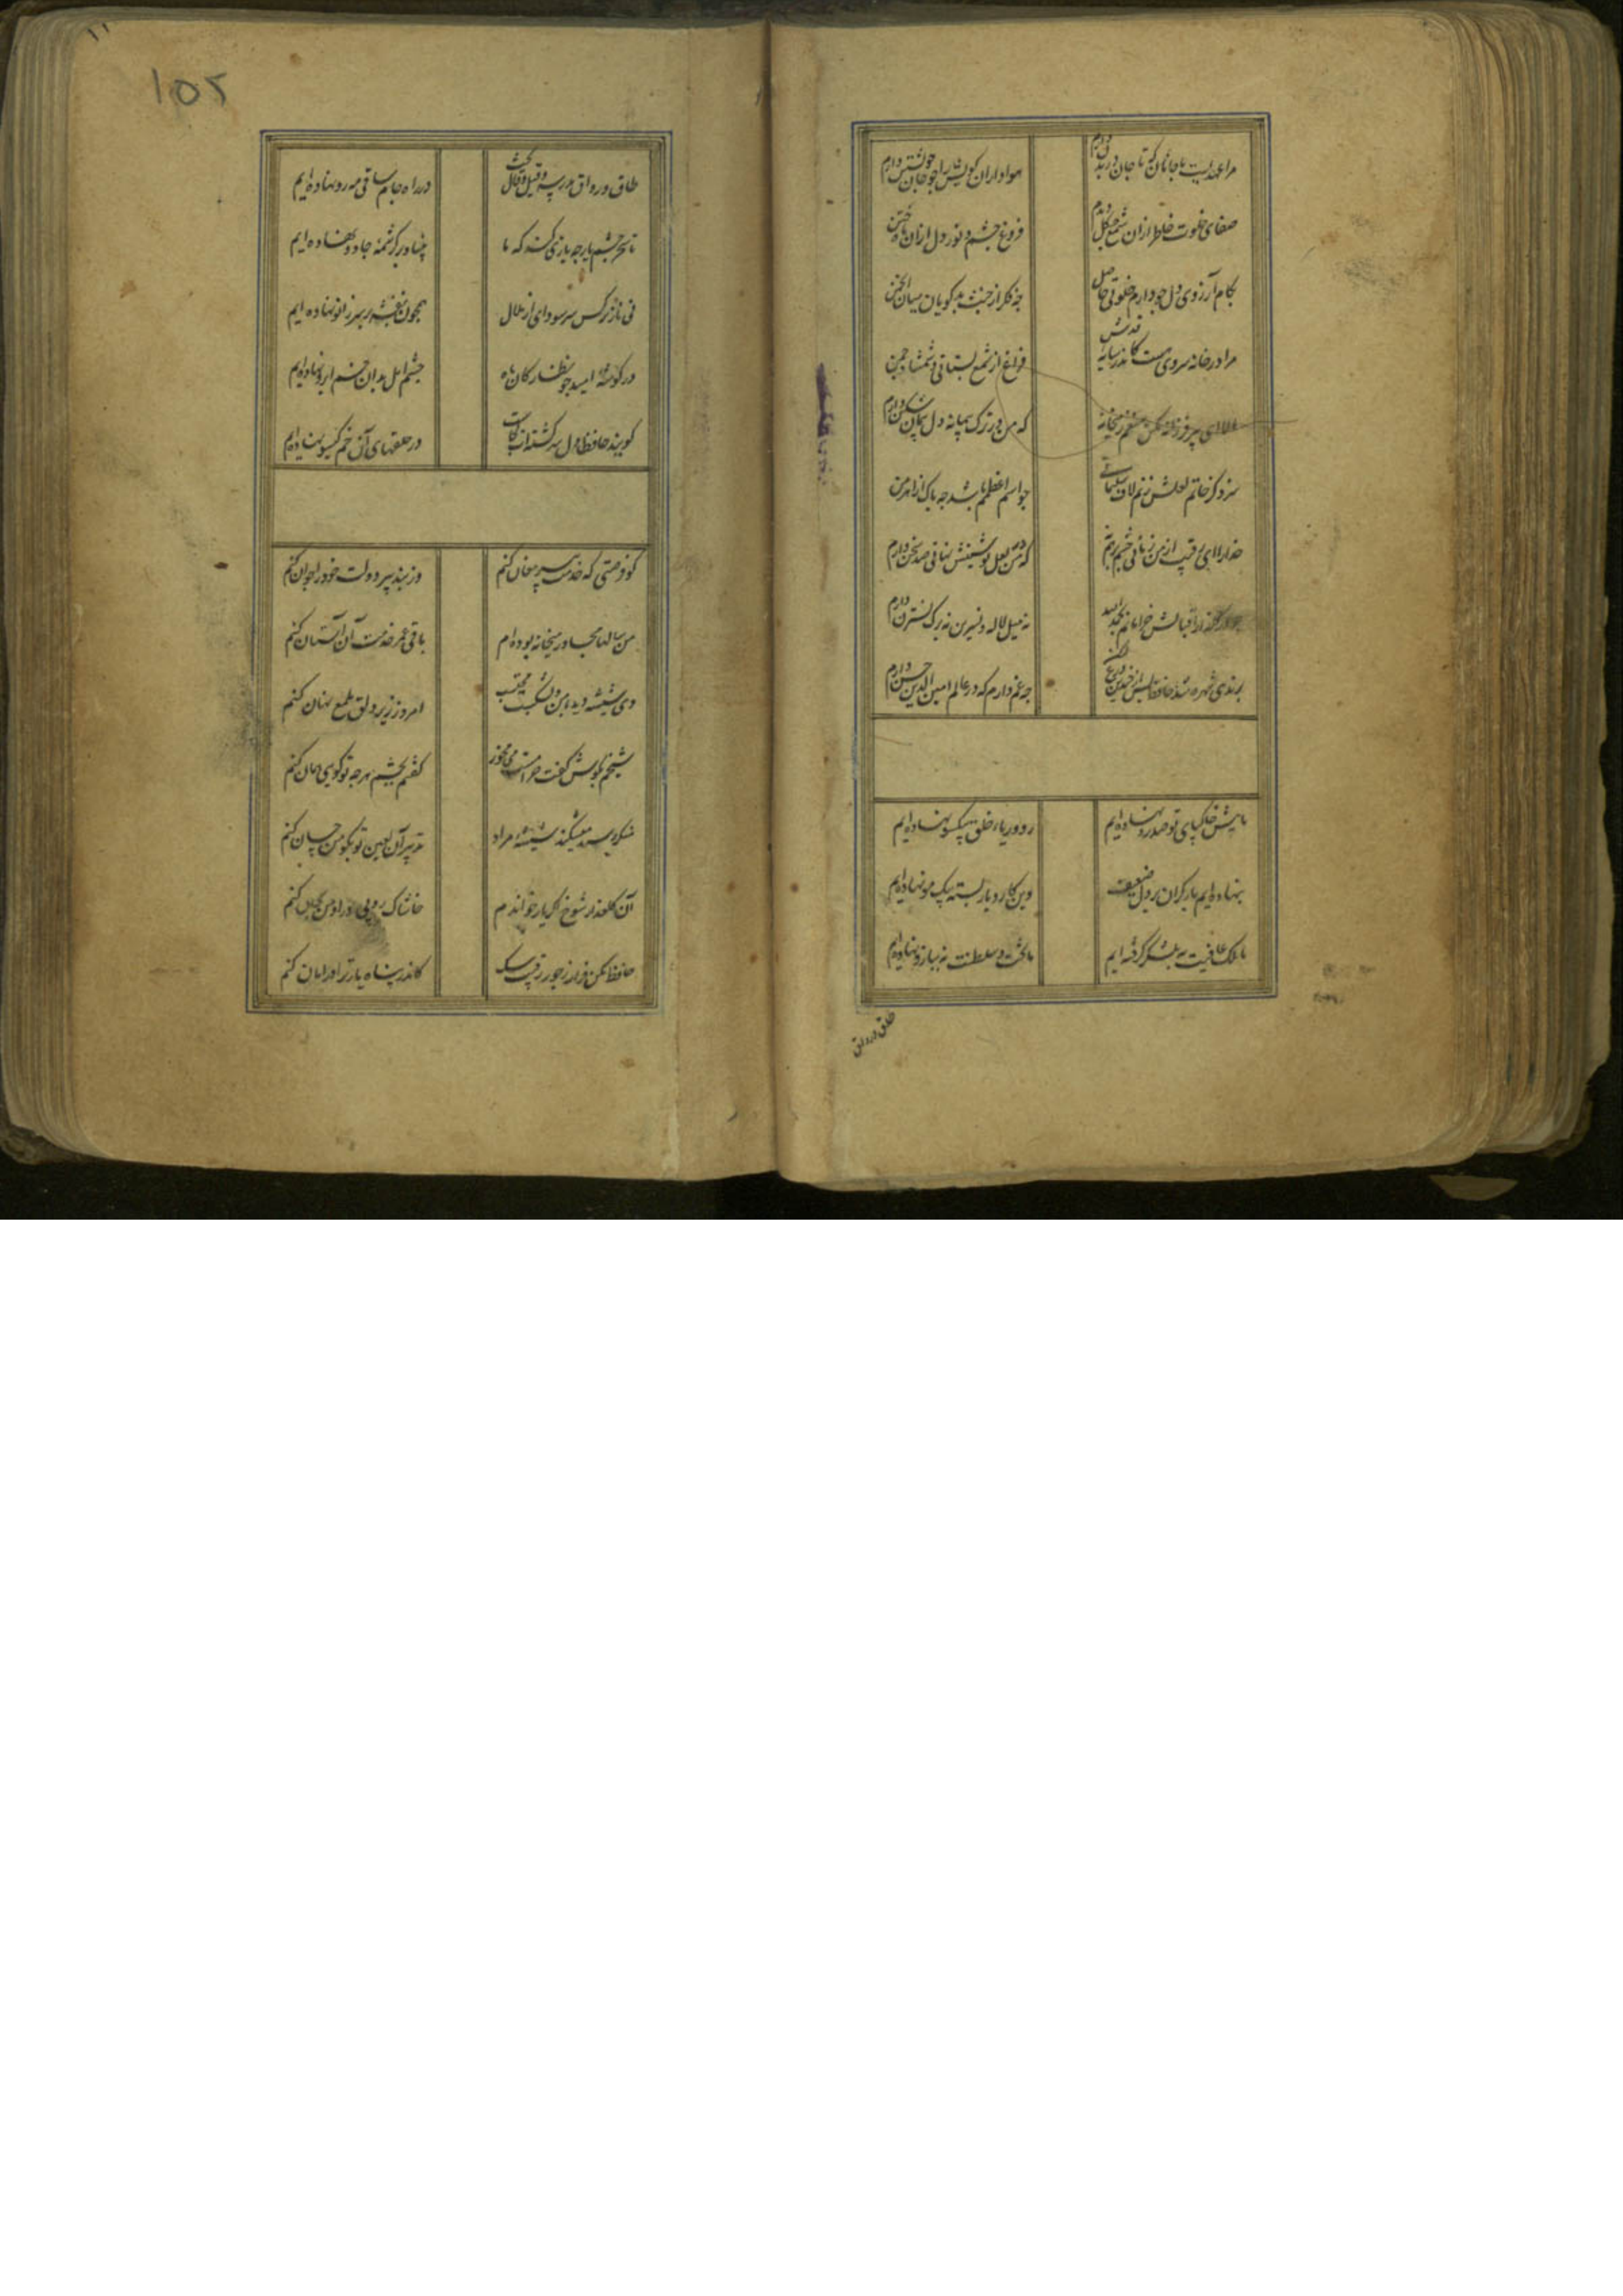 مرا عهدیست با جانان که تا جان در بدن دارم
هواداران کویش را چو جان خویشتن دارم
صفای خلوت خاطر از آن شمع چگل دارم
فروغ چشم و نور دل از آن ماه ختن
بکام آرزوی دل چو دارم خلوتی حاصل
چه فکر از خبث بدگویان میان انجمن
مرا در خانه سروی هست کاندر سایه قدش
فراغ از شمع بستانی و شمشاد چمن
الا ای پیر فرزانه مکن منعم ز میخانه
که من در ترک پیمانه دل پیمان شکن دارم
سزد کز خاتم لعلش زنم لاف سلیمانی
چو اسم اعظمم باشد چه باک از اهرمن
خدا را ای رقیب از من زمانی چشم بر هم
که من با لعل نوشینش نهانی صد سخن دارم
چو در گلزار اقبالش خرامانم بحمدالله
نه میل لاله و نسرین نه برگ نسترن دارم
برندی شهره شد حافظ پس از چندین ورع
چه غم دارم که در عالم امین الدین حسن دارم
ما پیش خاکپای تو صد رو نهاده ایم
روی و ریا خلق بیکسو نهاده ایم
بنهاده ایم بار گران بر دل ضعیف
وین کار و بار بسته بیک مو نهاده ایم
ما ملک عافیت نه بلشکر گرفته ایم
ما تخت سلطنت نه ببازو نهاده ایم
طاق و رواق
۱۵۲
طاق و رواق مدرسه و قیل و قال بحث
در راه جام ساقی مه رو نهاده ایم
تا سحر چشم یار چه بازی کند که ما
بنیاد بر کرشمه جادو نهاده ایم
بی ناز نرگس سر سودای از ملال
همچون بنفشه بر سر زانو نهاده ایم
در گوشه امید چو نظارگان ماه
چشم امل بدان خم ابرو نهاده ایم
گویند حافظا دل سرگشته ات کجاست
در حلقهای آن خم گیسو نهاده ایم
کو فرصتی که خدمت پیر مغان کنم
وز پند پیر دولت خود را جوان کنم
من سالها مجاور میخانه بوده ام
باقی عمر خدمت آن آستان کنم
دی شیشه دید با من و بشکست محتسب
امروز زیر دلق ملمع نهان کنم
شیخم بگوش گفت حرامست می مخور
گفتم بچشم هر چه تو گویی همان کنم
میشکند شیشه مراد
تدبیر آن لعین تو بگو من چسان کنم
آن گلعذار شوخ اگر یار خواندم
خاشاک روبی در او من بجان کنم
حافظ مکن فرار ز جور رقیب سگ
کاندر پناه یار ترا در امان کنم